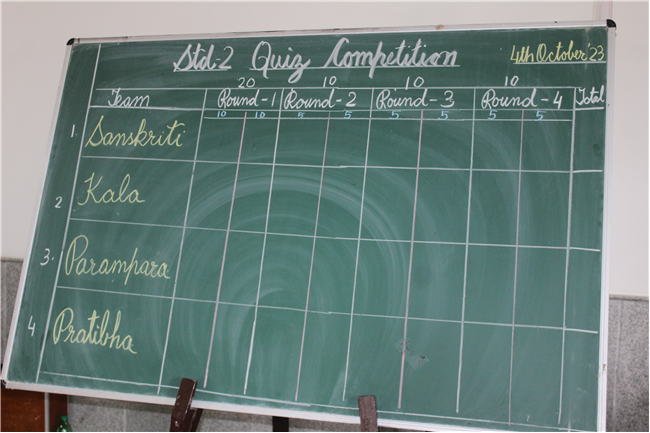 Std-2 Quiz Competition 4th October'23
20 10 10 10
Team Round-1 Round-2 Round-3 Round-4 Total
10 10 5 5 5 5 5 5
1. Sanskriti
2 Kala
3. Parampara
4 Pratibha